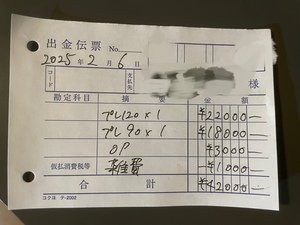 出金伝票 No.
2025年 2月 6日
コード 支払先 様
勘定科目 摘要 金額
プレ120×1 ¥22000-
プレ90×1 ¥18000
OP ¥3000
仮払消費税等 雑費 ¥1000-
合計 ¥42000-
コクヨ テ-2002